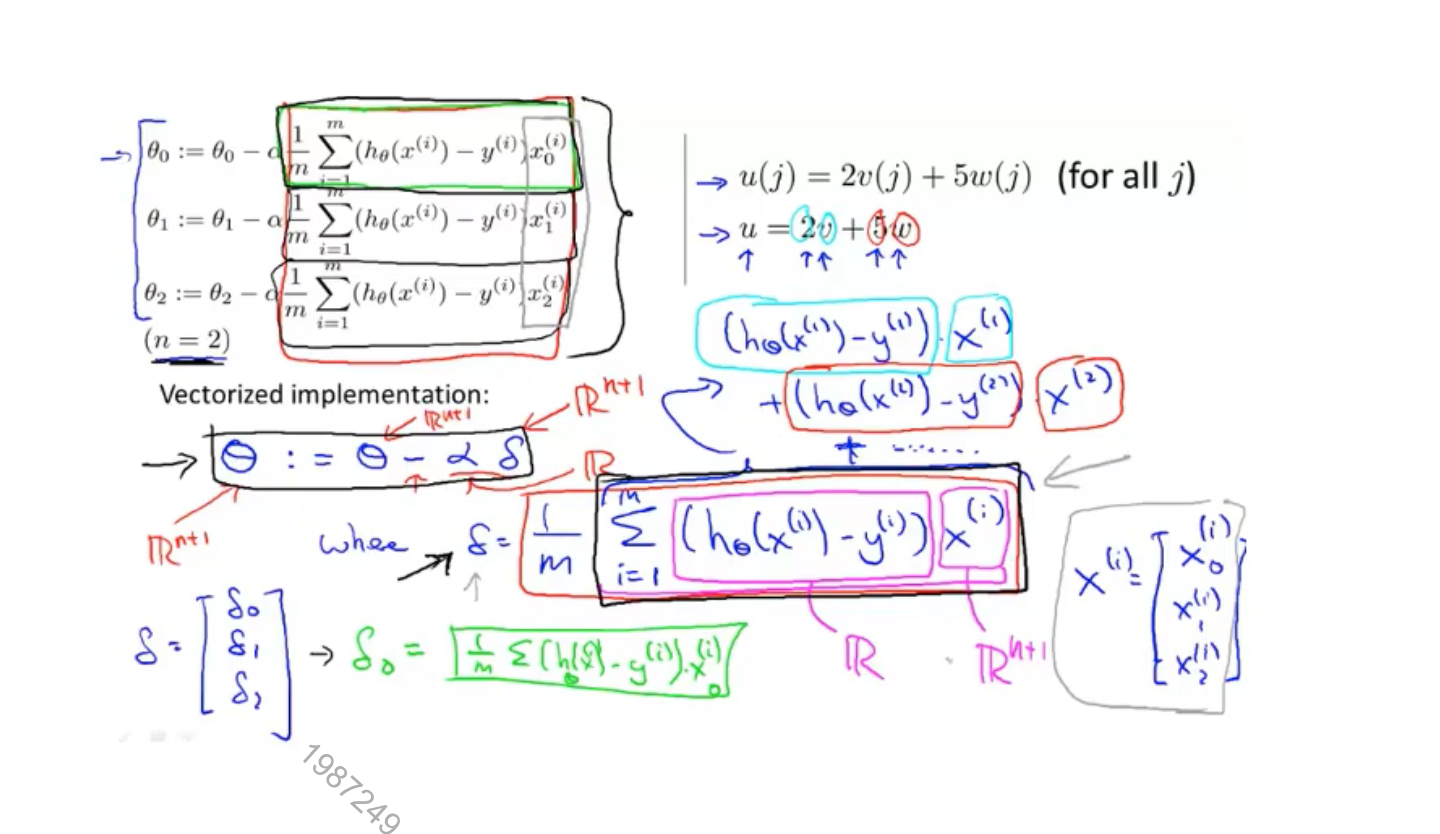 θ₀ := θ₀ − α 1/m ∑ᵢ₌₁ᵐ (h_θ(x⁽ⁱ⁾) − y⁽ⁱ⁾) x₀⁽ⁱ⁾
θ₁ := θ₁ − α 1/m ∑ᵢ₌₁ᵐ (h_θ(x⁽ⁱ⁾) − y⁽ⁱ⁾) x₁⁽ⁱ⁾
θ₂ := θ₂ − α 1/m ∑ᵢ₌₁ᵐ (h_θ(x⁽ⁱ⁾) − y⁽ⁱ⁾) x₂⁽ⁱ⁾
(n = 2)
→ u(j) = 2v(j) + 5w(j) (for all j)
→ u = 2v + 5w
(h_θ(x⁽¹⁾) − y⁽¹⁾) · x⁽¹⁾
+ (h_θ(x⁽²⁾) − y⁽²⁾) · x⁽²⁾
+ ........
Vectorized implementation:
ℝⁿ⁺¹ ℝⁿ⁺¹
→ θ := θ − α δ
ℝ
ℝⁿ⁺¹
where → δ = 1/m ∑ᵢ₌₁ᵐ (h_θ(x⁽ⁱ⁾) − y⁽ⁱ⁾) x⁽ⁱ⁾
ℝ ℝⁿ⁺¹
x⁽ⁱ⁾ = [x₀⁽ⁱ⁾ x₁⁽ⁱ⁾ x₂⁽ⁱ⁾]
δ = [δ₀ δ₁ δ₂] → δ₀ = 1/m Σ (h_θ(x⁽ⁱ⁾) − y⁽ⁱ⁾) · x₀⁽ⁱ⁾
1987249